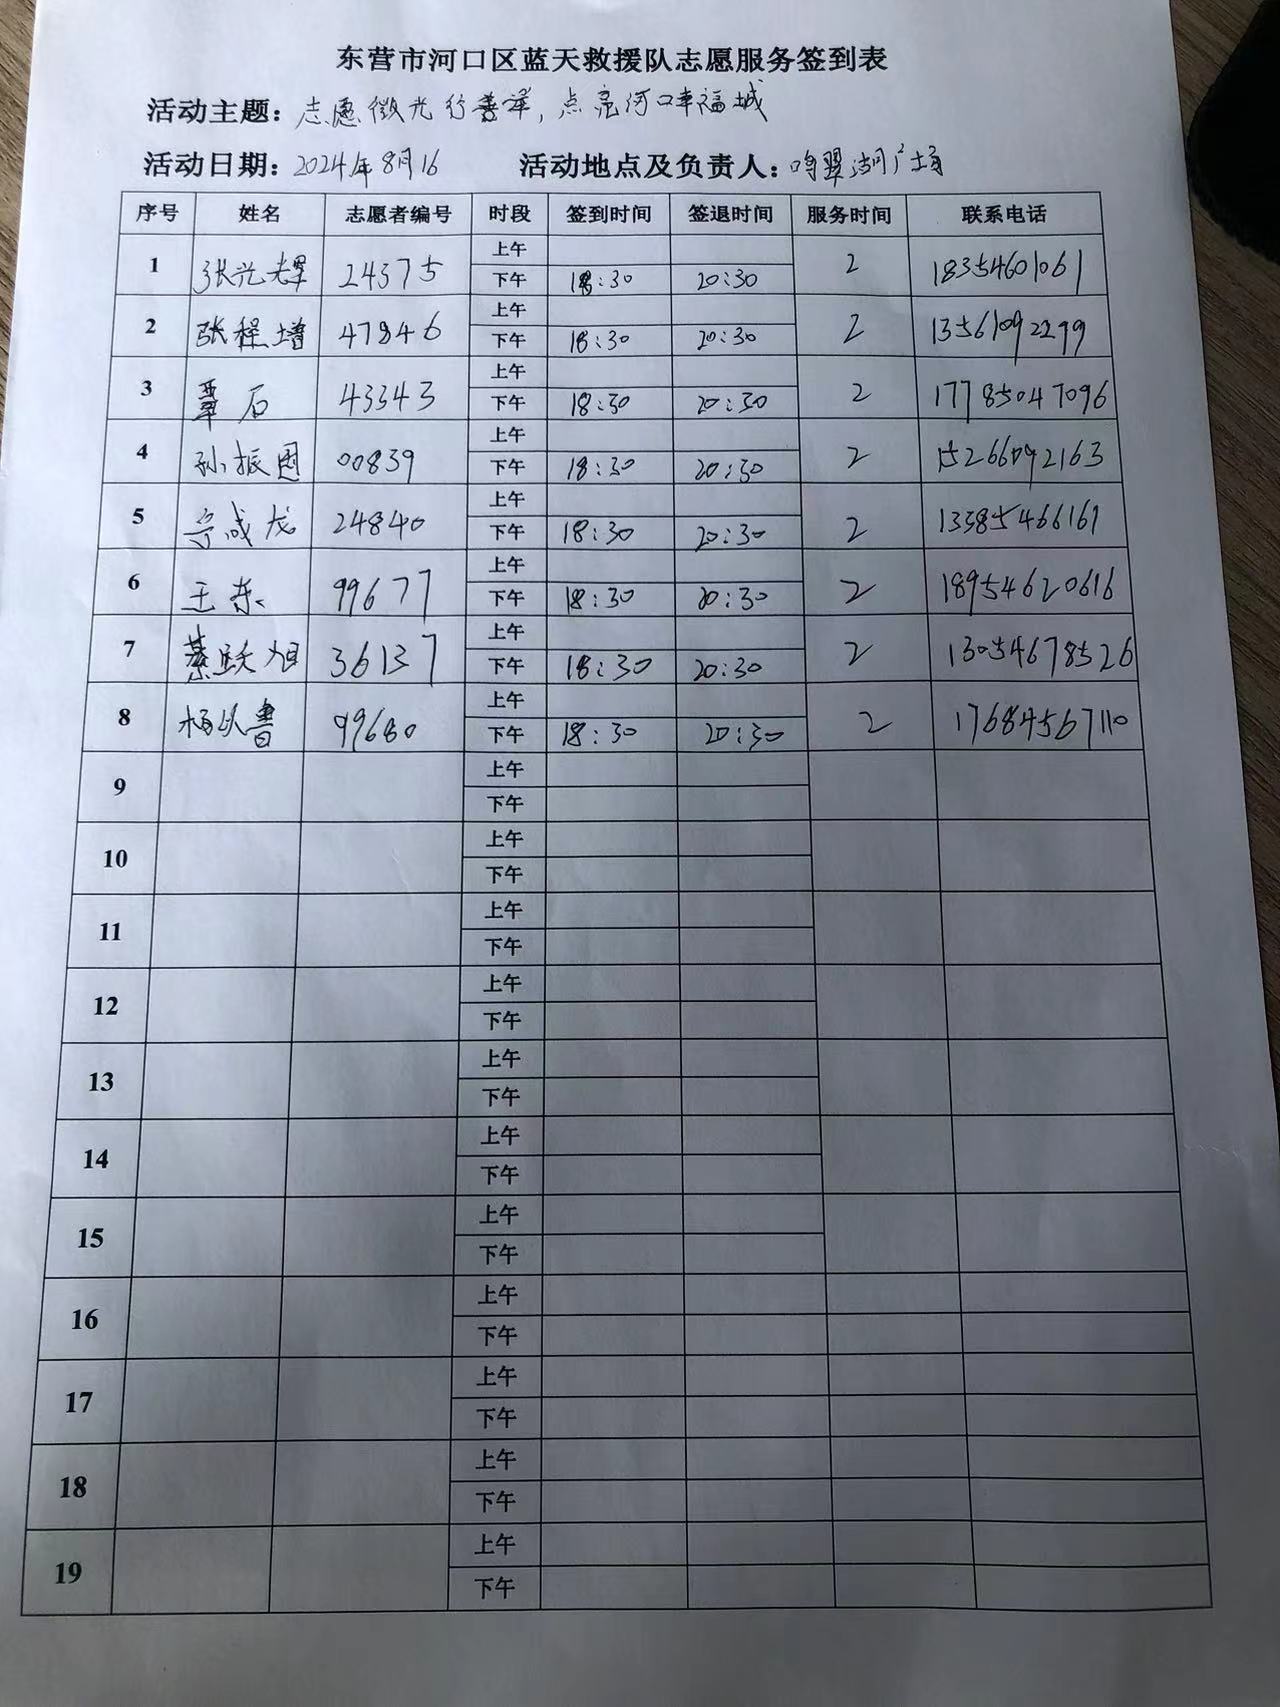 东营市河口区蓝天救援队志愿服务签到表
活动主题：志愿微光行善举，点亮河口幸福城
活动日期：2024年8月16 活动地点及负责人：鸣翠湖广场
序号 姓名 志愿者编号 时段 签到时间 签退时间 服务时间 联系电话
上午
1 张光辉 24375 2 18354601061
下午 18:30 20:30
上午
2 张程增 47846 2 13561092299
下午 18:30 20:30
上午
3 覃石 43343 2 17785047096
下午 18:30 20:30
上午
4 孙振国 00839 2 15266092163
下午 18:30 20:30
上午
5 成龙 24840 2 13385466161
下午 18:30 20:30
上午
6 王东 99677 2 18954620616
下午 18:30 20:30
上午
7 綦跃旭 36137 2 13054678526
下午 18:30 20:30
上午
8 杨以鲁 99680 2 17684567110
下午 18:30 20:30
上午
9
下午
上午
10
下午
上午
11
下午
上午
12
下午
上午
13
下午
上午
14
下午
上午
15
下午
上午
16
下午
上午
17
下午
上午
18
下午
上午
19
下午